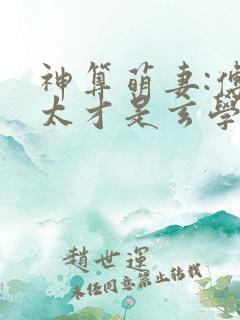 神算萌妻:傅
太才是玄學
趙世運
未經同意禁止轉載